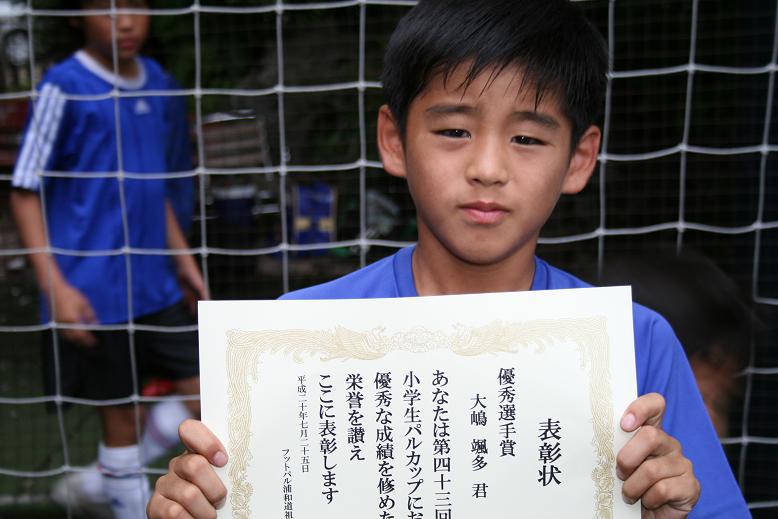 表彰状
優秀選手賞
大嶋 颯多 君
あなたは第四十三回
小学生パルカップにお
優秀な成績を修めた
栄誉を讃え
ここに表彰します
平成二十年七月二十五日
フットパル浦和道祖